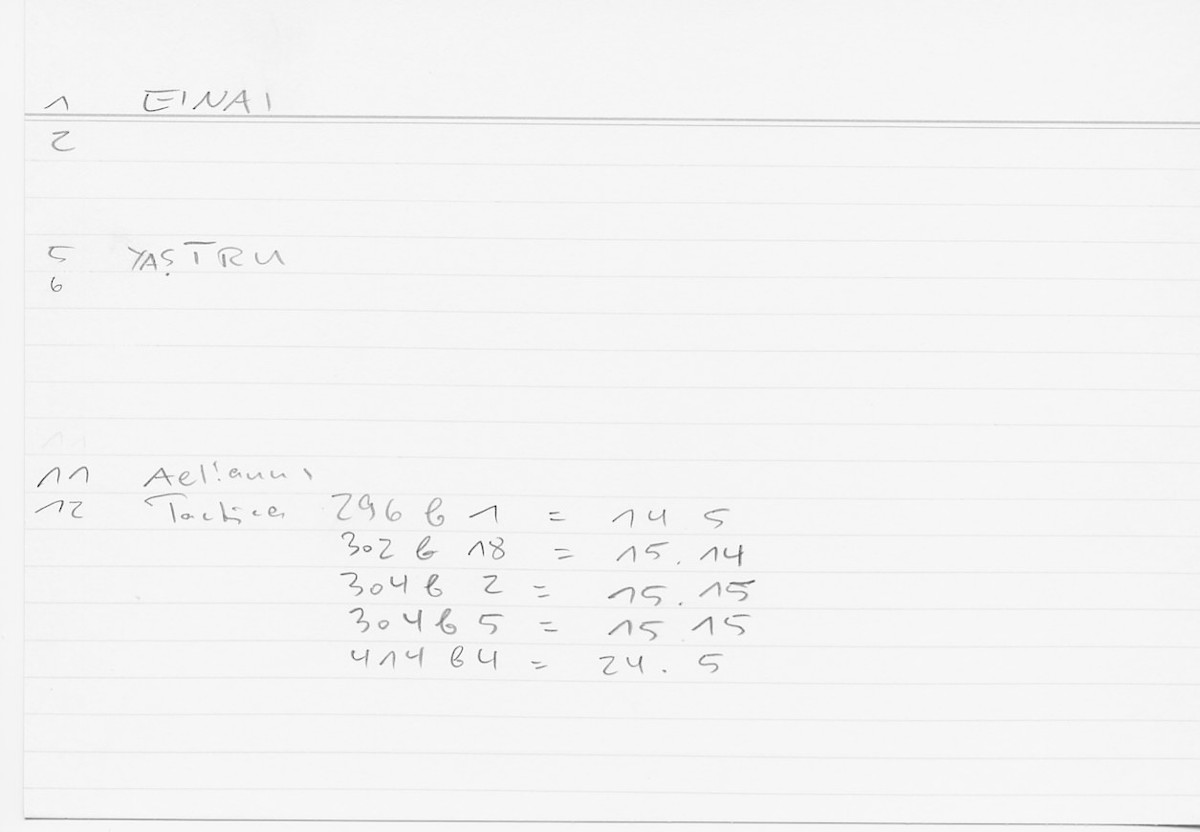 1 EINAI
2
5 YAṢTRU
6
11
11 Aelianus
12 Tactica 296 b 1 = 14 5
302 b 18 = 15.14
304 b 2 = 15.15
304 b 5 = 15 15
414 b 4 = 24.5